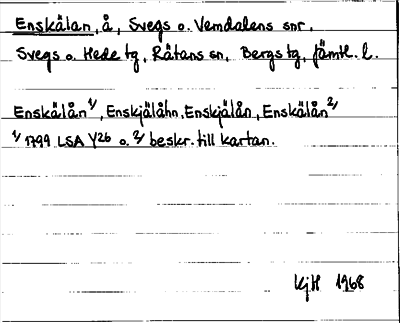 Enskälan, å, Svegs o. Vemdalens snr,
Svegs o. Hede tg, Råtans sn, Bergs tg, Jämtl. l.
Enskälån 1/, Enskjälåhn, Enskjälån, Enskälån 2/
1/ 1799 LSA Y26 o. 2/ beskr. till kartan.
KjH 1968